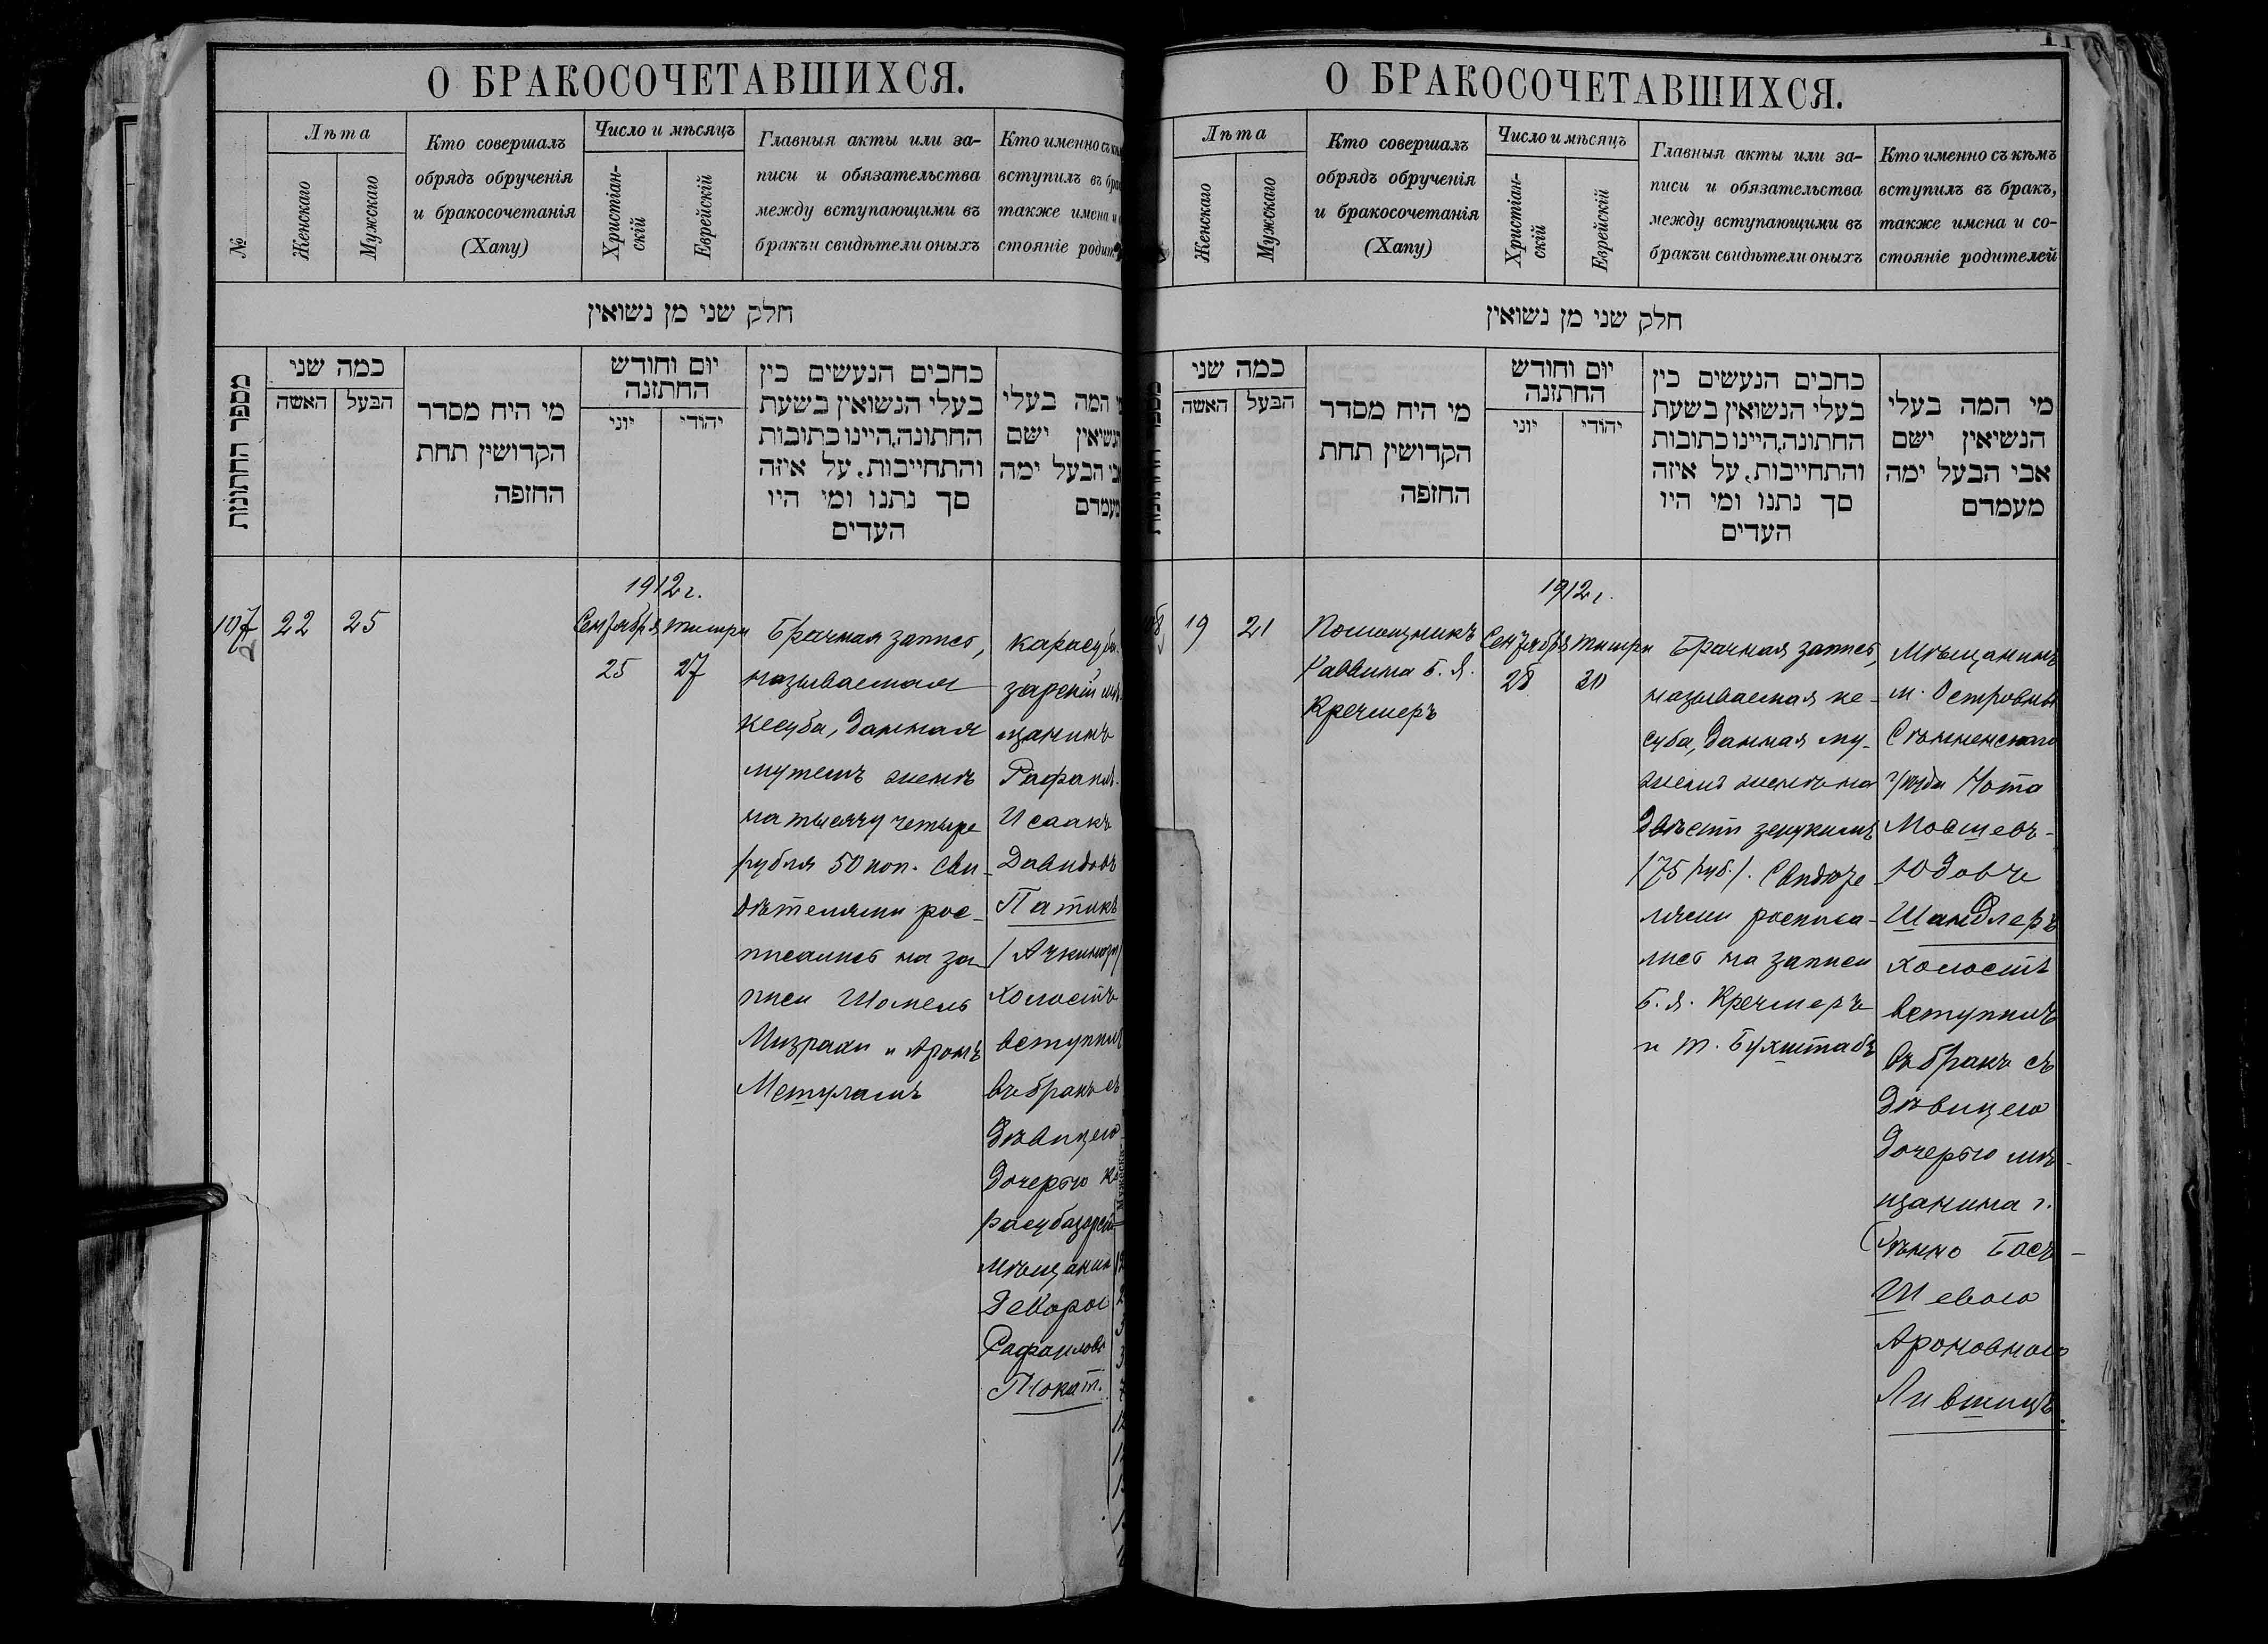 О БРАКОСОЧЕТАВШИХСЯ.
№
Лѣта
Женскаго
Мужскаго
Кто совершалъ
обрядъ обрученія
и бракосочетанія
(Хапу)
Число и мѣсяцъ
Христіан-
скій
Еврейскій
Главныя акты или за-
писи и обязательства
между вступающими въ
бракъи свидѣтели оныхъ
Кто именно съ
вступилъ въ
также имена и
стояніе
חלק שני מן נשואין
מספר החתונות
כמה שני
האשה
הבעל
מי היח מסדר
הקדושין תחת
החופה
יום וחודש
החתונה
יוני
יהודי
כתבים הנעשים בין
בעלי הנשואין בשעת
החתונה,היינו כתובות
והתחייבות, על איזה
סך נתנו ומי היו
העדים
המה בעלי
הנשיאין ישם
אבי הבעל ימה
מעמדם
1912 г.
107
22
25
Сентября
25
тишри
27
Брачная запись,
называемая
кесуба, данная
мужемъ женѣ
на тысячу четыре
рубля 50 коп. Сви-
дѣтелями рос-
писались на за-
писи Шомель
Мизрахи и Аронъ
Метуламъ
карасуба-
зарскій мѣ-
щанинъ
Рафаилъ-
Исаакъ
Давидовъ
Патикъ
холостъ
вступилъ
въ бракъ съ
дѣвицею
дочерью ка
расубазарск
мѣщанин
Деворою
Рафаилов
Покат.
О БРАКОСОЧЕТАВШИХСЯ.
Лѣта
Женскаго
Мужскаго
Кто совершалъ
обрядъ обрученія
и бракосочетанія
(Хапу)
Число и мѣсяцъ
Христіан-
скій
Еврейскій
Главныя акты или за-
писи и обязательства
между вступающими въ
бракъи свидѣтели оныхъ
Кто именно съ кѣмъ
вступилъ въ бракъ,
также имена и со-
стояніе родителей
חלק שני מן נשואין
כמה שני
האשה
הבעל
מי היח מסדר
הקדושין תחת
החופה
יום וחודש
החתונה
יוני
יהודי
כתבים הנעשים בין
בעלי הנשואין בשעת
החתונה,היינו כתובות
והתחייבות, על איזה
סך נתנו ומי היו
העדים
מי המה בעלי
הנשיאין ישם
אבי הבעל ימה
מעמדם
1912 г.
108
19
21
Помощникъ
Раввина Б. Я.
Кречмеръ
Сентября
28
тишри
30
Брачная запись,
называемая ке-
суба, данная му-
жемъ женѣ на
двѣсти зекукимъ
/75 руб./. Свидѣте
лями росписа-
лись на записи
Б. Я. Кречмеръ
и М. Бухштабъ
Мѣщанинъ
м. Островны
Сѣнненскаго
уѣзда Нота
Мовшевъ-
Юдовъ
Шандлеръ
холостъ
вступилъ
въ бракъ съ
дѣвицею
дочерью мѣ-
щанина г.
Сѣнно Бась-
Шевою
Ароновною
Лившицъ.